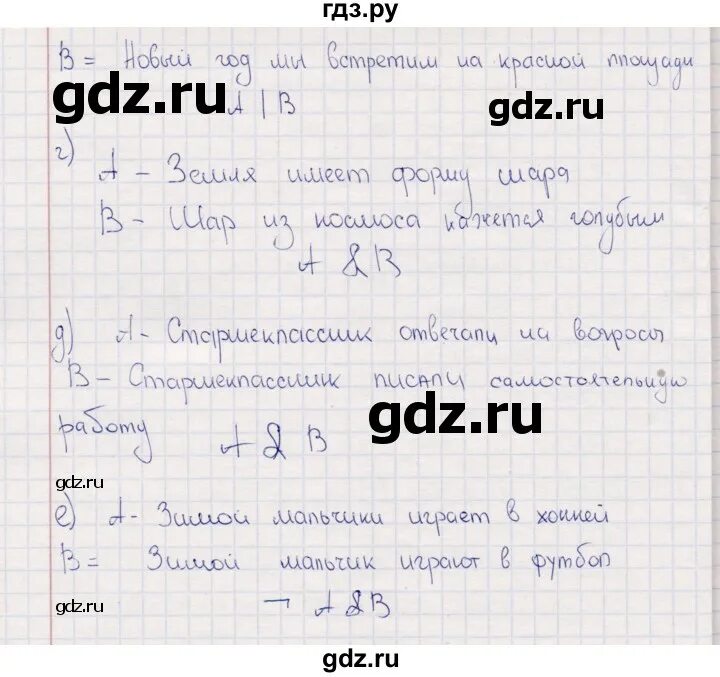 гдз.ру
В = Новый год мы встретим на красной площади
gdz.ru
А | В
gdz.ru
г)
А - Земля имеет форму шара
В - Шар из космоса кажется голубым
А & В
д) А - Старшеклассник отвечали на вопросы
В - Старшеклассник писали самостоятельную
работу
А & В
gdz.ru
gdz.ru
е) А - Зимой мальчики играет в хоккей
В = Зимой мальчик играют в футбол
gdz.ru
¬ А & В
gdz.ru